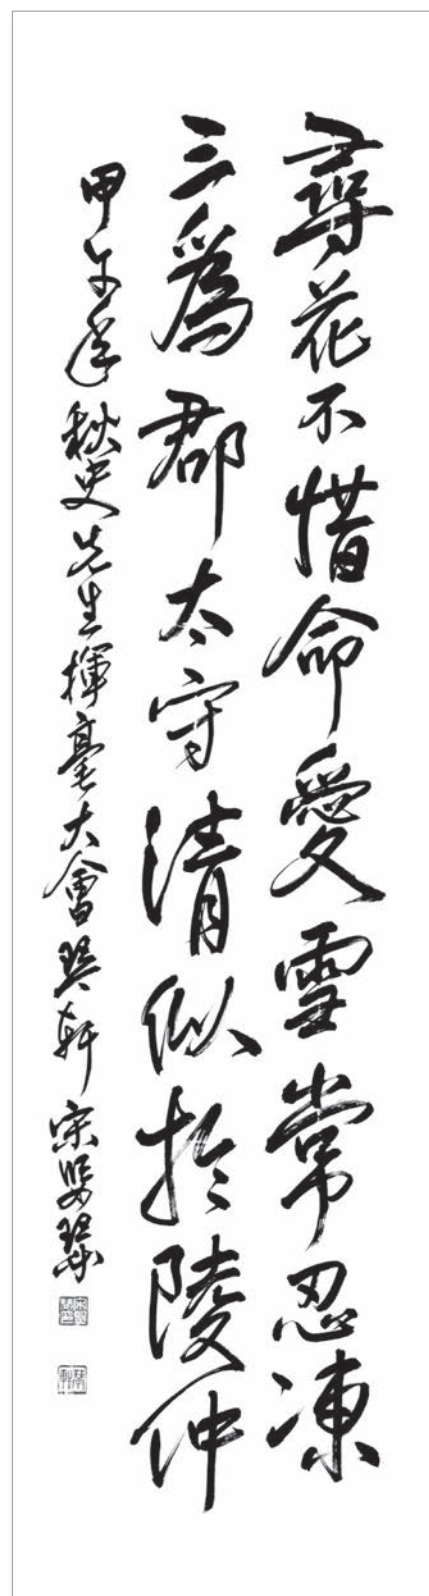 尋花不惜命愛雪常忍凍
三爲郡太守清似於陵仲
甲午年秋史先生揮毫大會琴軒宋